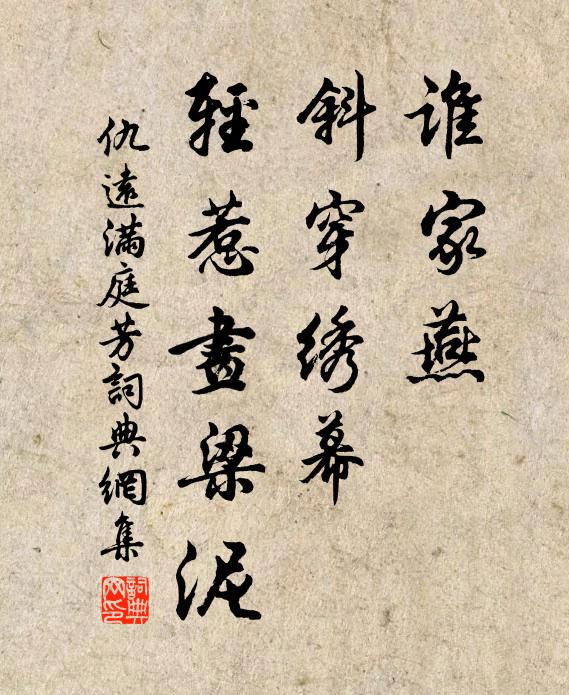 誰家燕
斜穿綉幕
輕惹畫梁泥
仇遠滿庭芳詞典網集
詞典網印